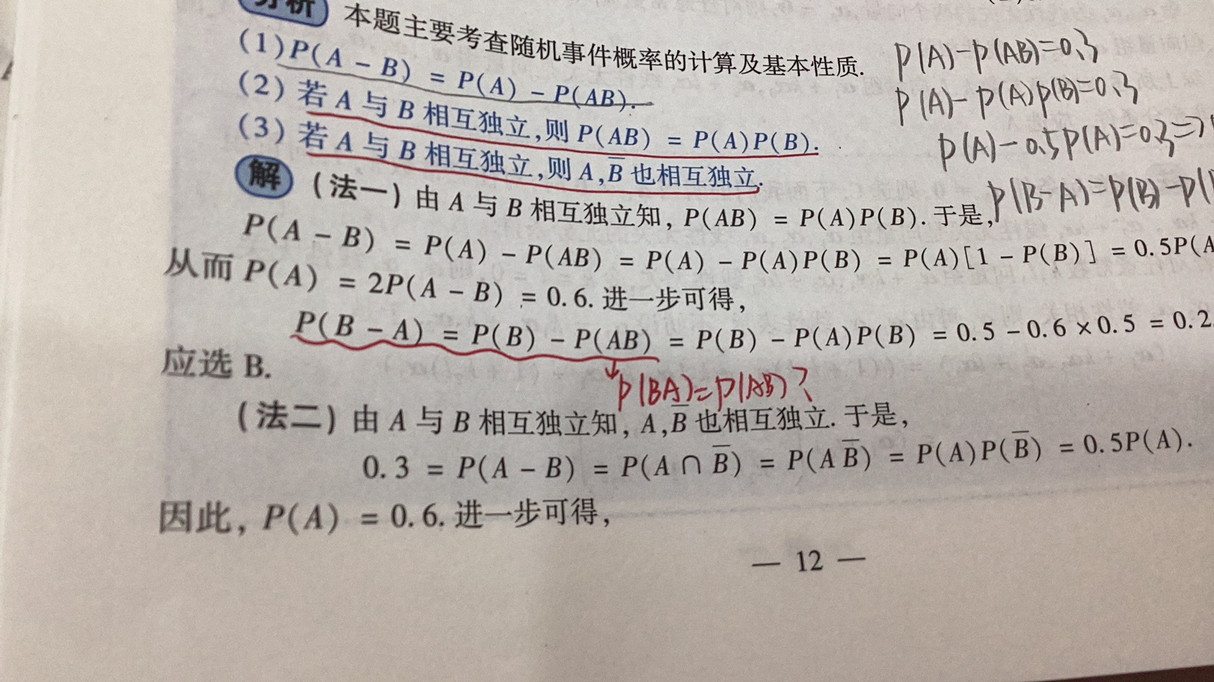 分析 本题主要考查随机事件概率的计算及基本性质.
(1)P(A − B) = P(A) − P(AB).
(2) 若 A 与 B 相互独立,则 P(AB) = P(A)P(B).
(3) 若 A 与 B 相互独立,则 A,B̅ 也相互独立.
P(A)−P(AB)=0.3
P(A)−P(A)P(B)=0.3
P(A)−0.5P(A)=0.3=>
P(B−A)=P(B)−P(
解 (法一) 由 A 与 B 相互独立知, P(AB) = P(A)P(B). 于是,
P(A − B) = P(A) − P(AB) = P(A) − P(A)P(B) = P(A)[1 − P(B)] = 0.5P(A
从而 P(A) = 2P(A − B) = 0.6. 进一步可得,
P(B − A) = P(B) − P(AB) = P(B) − P(A)P(B) = 0.5 − 0.6 × 0.5 = 0.2
应选 B.
P(BA)=P(AB)?
(法二) 由 A 与 B 相互独立知, A,B̅ 也相互独立. 于是,
0.3 = P(A − B) = P(A ∩ B̅) = P(A B̅) = P(A)P(B̅) = 0.5P(A).
因此, P(A) = 0.6. 进一步可得,
— 12 —